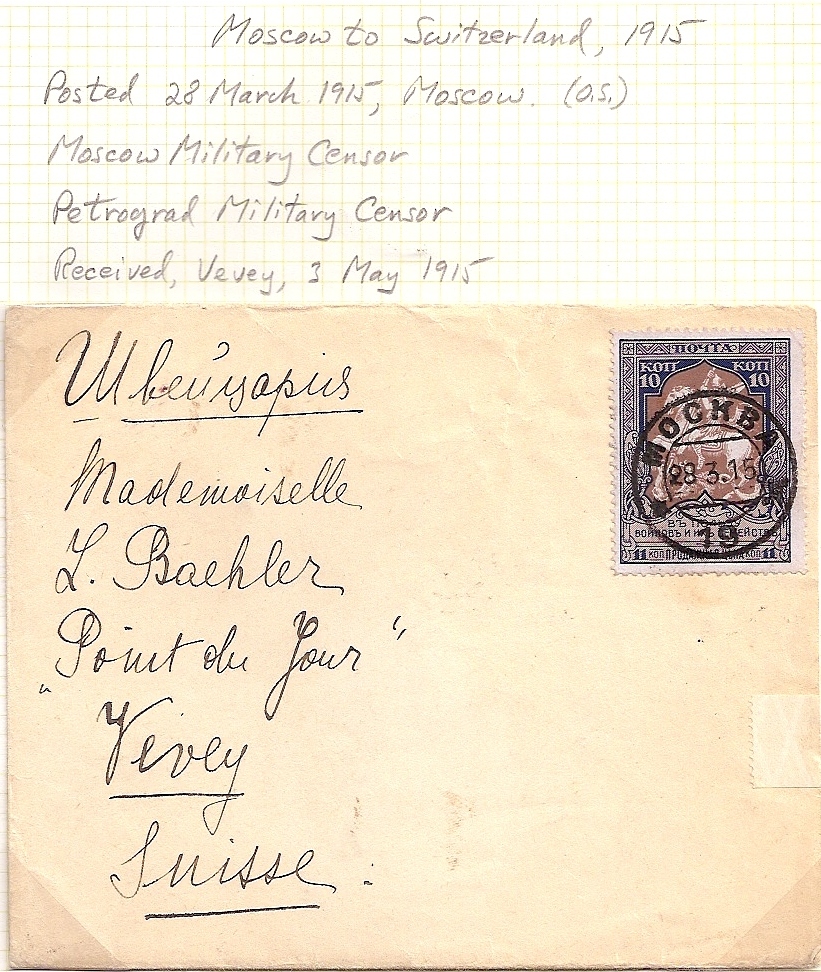 Moscow to Switzerland, 1915
Posted 28 March 1915, Moscow. (O.S.)
Moscow Military Censor
Petrograd Military Censor
Received, Vevey, 3 May 1915
Швейцарія
Mademoiselle
L. Baehler
"Point du Jour"
Vevey
Suisse.
ПОЧТА
КОП КОП
10 10
МОСКВА
28 3.15
19
ВЪ
ВОИНОВЪ И ИХЪ
11 КОП. ЦѢНА КОП. 11